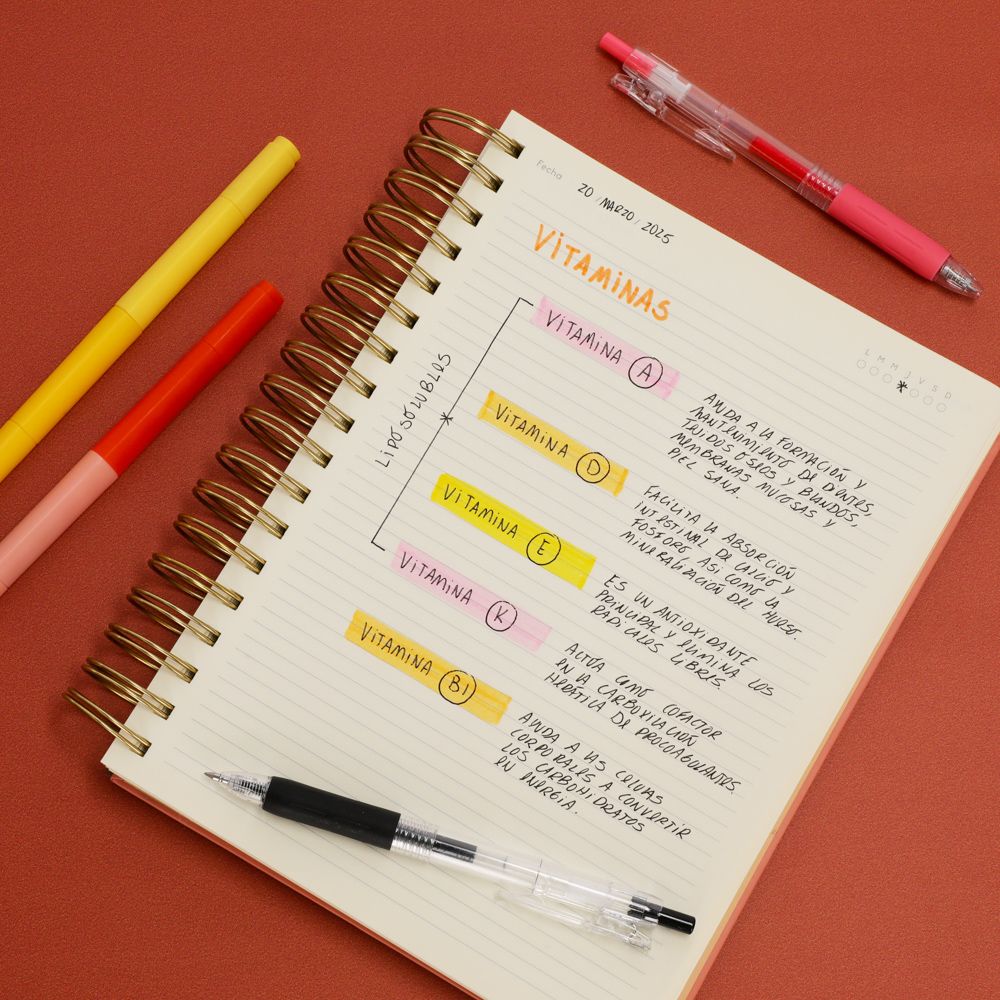 Fecha 20 / MARZO / 2025
VITAMINAS
L M M J V S D
LIPOSOLUBLES
VITAMINA A
AYUDA A LA FORMACIÓN Y
MANTENIMIENTO DE DIENTES,
TEJIDOS OSEOS Y BLANDOS,
MEMBRANAS MUCOSAS Y
PIEL SANA.
VITAMINA D
FACILITA LA ABSORCIÓN
INTESTINAL DE CALCIO Y
FOSFORO ASI COMO LA
MINERALIZACIÓN DEL HUESO.
VITAMINA E
ES UN ANTIOXIDANTE
PRINCIPAL Y ELIMINA LOS
RADICALES LIBRES.
VITAMINA K
ACTÚA COMO COFACTOR
EN LA CARBOXILACIÓN
HEPÁTICA DE PROCOAGULANTES
VITAMINA B1
AYUDA A LAS CELULAS
CORPORALES A CONVERTIR
LOS CARBOHIDRATOS
EN ENERGIA.